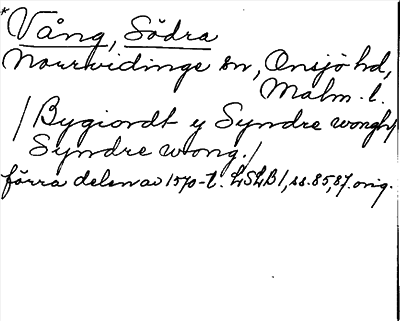 *Vång, Södra
Norrvidinge sn, Onsjö hd,
Malm. l.
/Bygiordt y Syndre wongh/
Syndre wong./
förra delen av 1570-t. LSLB1, ss.85,87. orig.